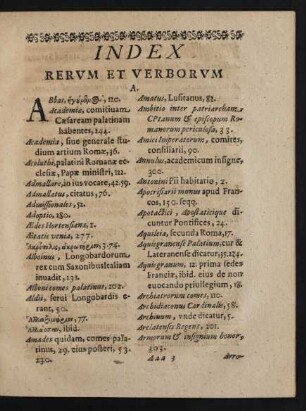 INDEX
RERVM ET VERBORVM
A.
ABbas. 110.
Academia, comitiuam
Cæsaream palatinam
habentes, 244.
Academia, siue generale stu-
dium artium Romæ, 56.
Acoluthi, palatini Romanæ ec-
clesiæ, Papæ ministri, 112.
Admallare, in ius vocare, 42.59.
Admallatus, citatus, 76.
Admissionales, 51.
Adoptio, 180.
Ædes Hortensiana, 2.
Ætatis venia, 277.
374.
Alboinus, Longobardorum
rex cum Saxonibus Italiam
inuadit, 131.
Albenitones palatinus, 202.
Aldii, serui Longobardis e-
rant, 50.
77.
ibid.
Amadeus quidam, comes pala-
tinus, 29. eius posteri, 53.
230.
Amatus, Lusitanus, 81.
Ambitio inter patriarcham
CPtanum & episcopum Ro-
manorum periculosa, 33.
Amici Imperatorum, comites,
consiliarij, 90.
Annulus, academicum insigne,
300.
Antonini Pii habitatio, 2.
Apocrisiarii munus apud Fran-
cos, 150. seqq.
Apotactici, Apostatique di-
cuntur Pontifices, 24.
Aquileia, secunda Roma, 17.
Aquisgranense Palatium, cur &
Lateranense dicatur, 31.124.
Aquisgranum, 12. prima sedes
Franciæ, ibid. eius de non
euocando priuilegium, 18.
Archiatrorum comes, 110.
Archidiaconus Cardinalis, 58.
Archiuum, vnde dicatur, 5.
Arelatensis Regens, 201.
Armorum & insignium honor,
303.
Aaa 3
Arro-